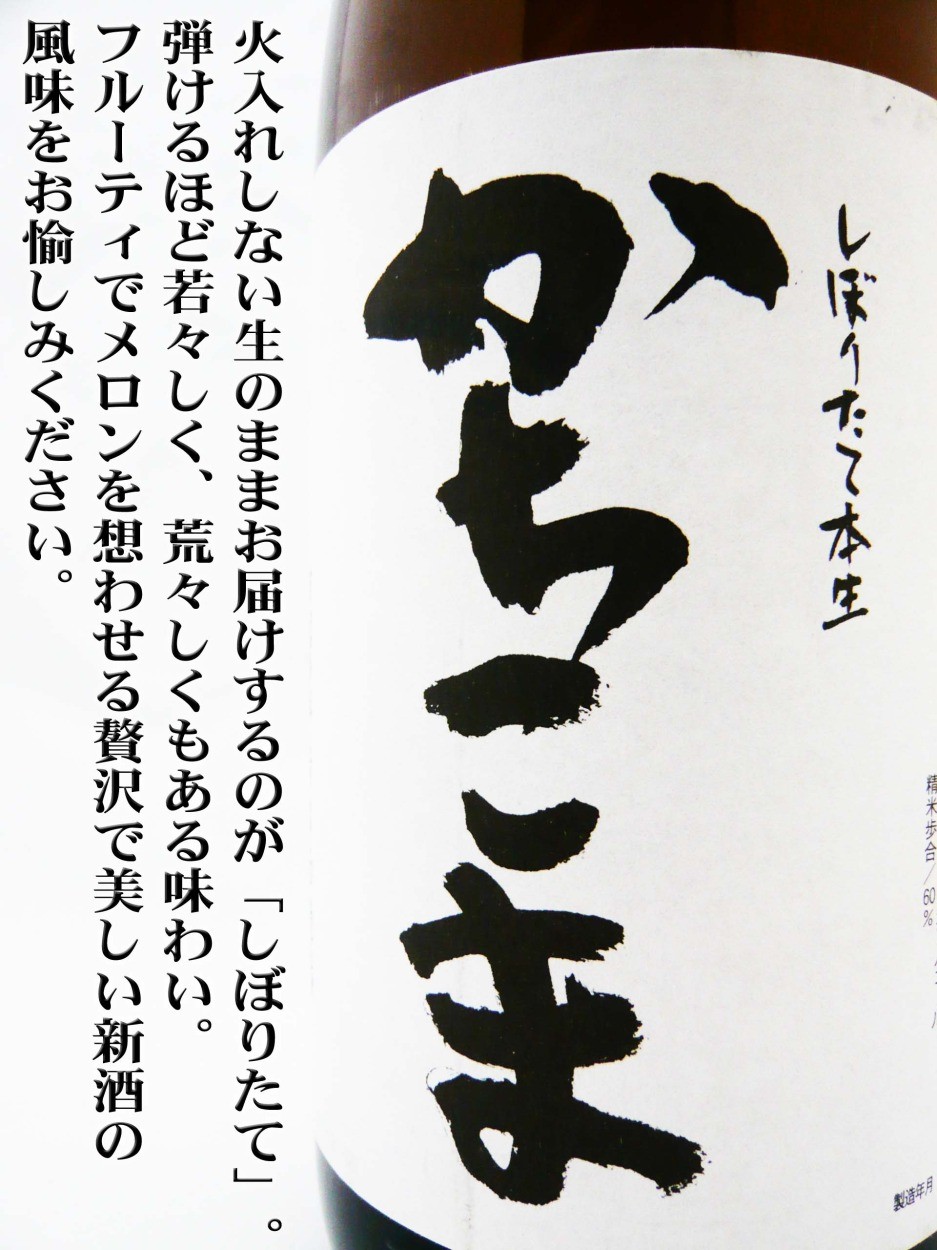 しぼりたて本生
かちこま
精米歩合/60%
製造年月
火入れしない生のままお届けするのが「しぼりたて」。
弾けるほど若々しく、荒々しくもある味わい。
フルーティでメロンを想わせる贅沢で美しい新酒の
風味をお愉しみください。